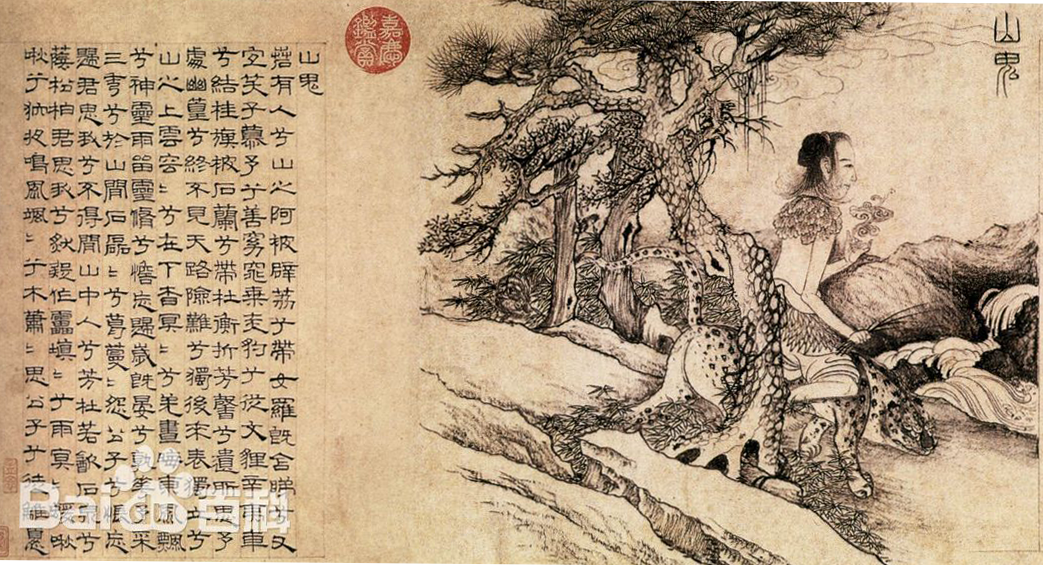 山鬼
嘉慶
鑑賞
山鬼
若有人兮山之阿被薜荔兮帶女羅既含睇兮又
宜笑子慕予兮善窈窕乘赤豹兮從文貍辛夷車
兮結桂旗被石蘭兮帶杜衡折芳馨兮遺所思予
處幽篁兮終不見天路險難兮獨後來表獨立兮
山之上雲容〻兮在下杳冥〻兮羌晝晦東風飄
兮神靈雨留靈脩兮憺忘歸歲既晏兮孰華予采
三秀兮於山間石磊〻兮葛蔓〻怨公子兮悵忘
歸君思我兮不得閒山中人兮芳杜若飲石泉兮
蔭松柏君思我兮然疑作靁填〻兮雨冥〻猨啾
啾兮狖夜鳴風颯〻兮木蕭〻思公子兮徒離憂
Bai百科